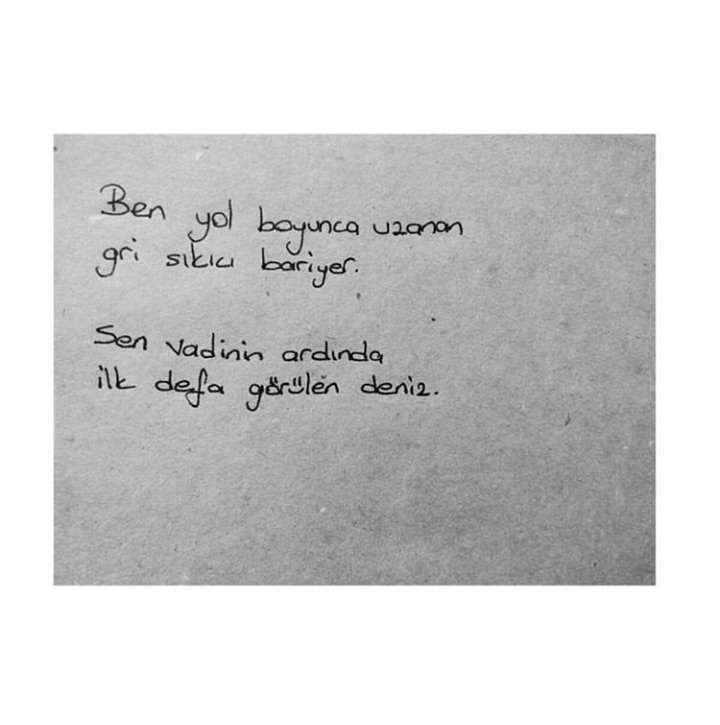 Ben yol boyunca uzanan
gri sıkıcı bariyer.
Sen vadinin ardında
ilk defa görülen deniz.